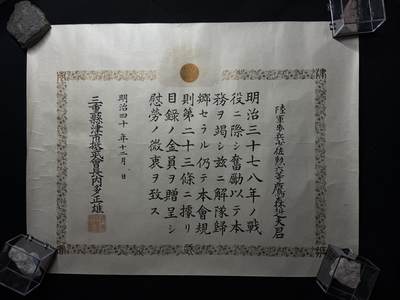 陸軍歩兵
明治三十七八年ノ戰
役ニ際シ奮励以テ本
務ヲ竭シ玆ニ解隊歸
郷セラル仍テ本會規
則第二十三條ニ據リ
目録ノ金員ヲ贈呈シ
慰勞ノ微衷ヲ致ス
明治四十年十二月 日
三重縣津市 會長内多正雄